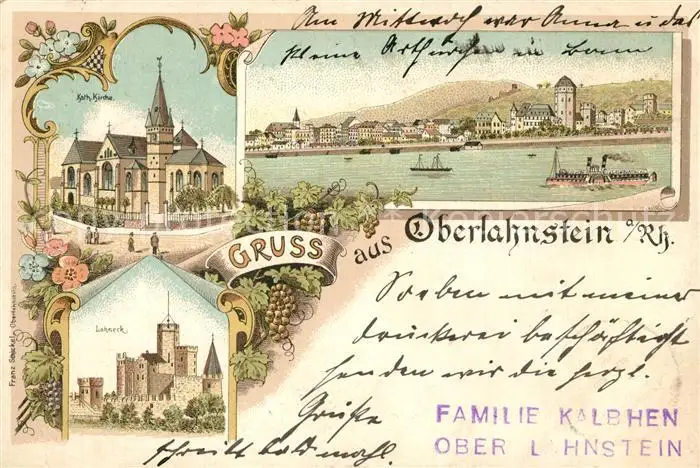 Am Mittwoch war Anna u das
kleine Arthürchen in Bonn
Kath. Kirche.
GRUSS aus Oberlahnstein a/Rh.
Lahneck.
Franz Schickel, Oberlahnstein.
Soeben mit meiner
druckerei beschäftigt
senden wir die herzl.
Grüße
schreibt bald mahl.
FAMILIE KALBHEN
OBER L HNSTEIN